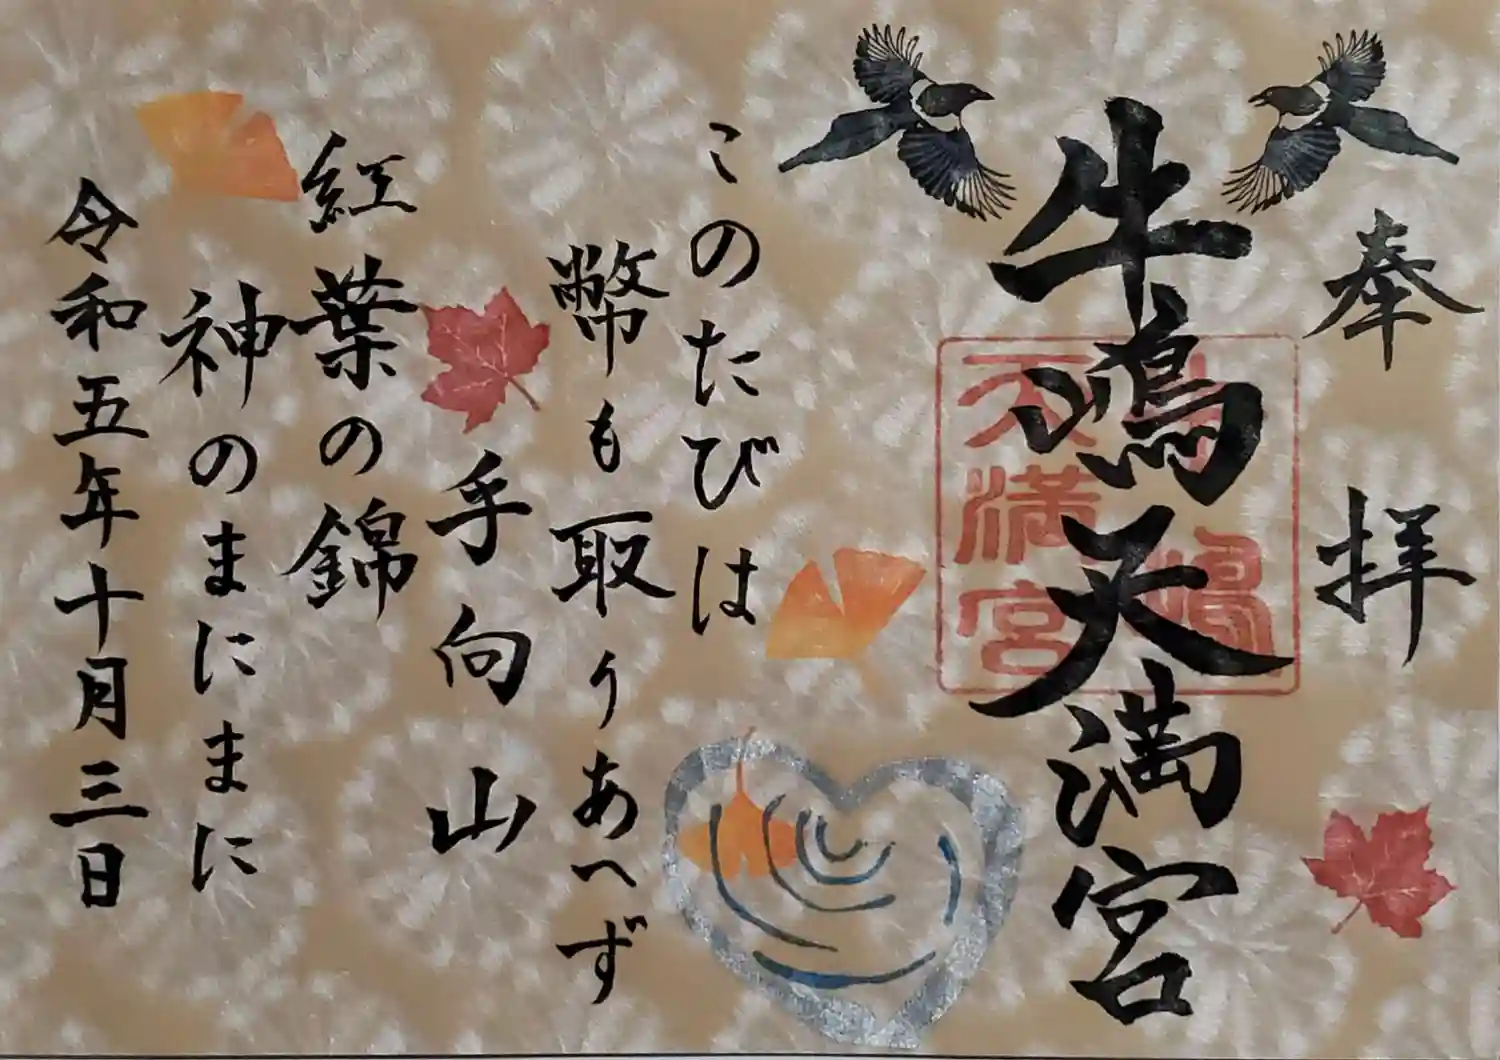 奉拝
牛嶋天満宮
牛嶋
天満宮
このたびは
幣も取りあへず
手向山
紅葉の錦
神のまにまに
令和五年十月三日